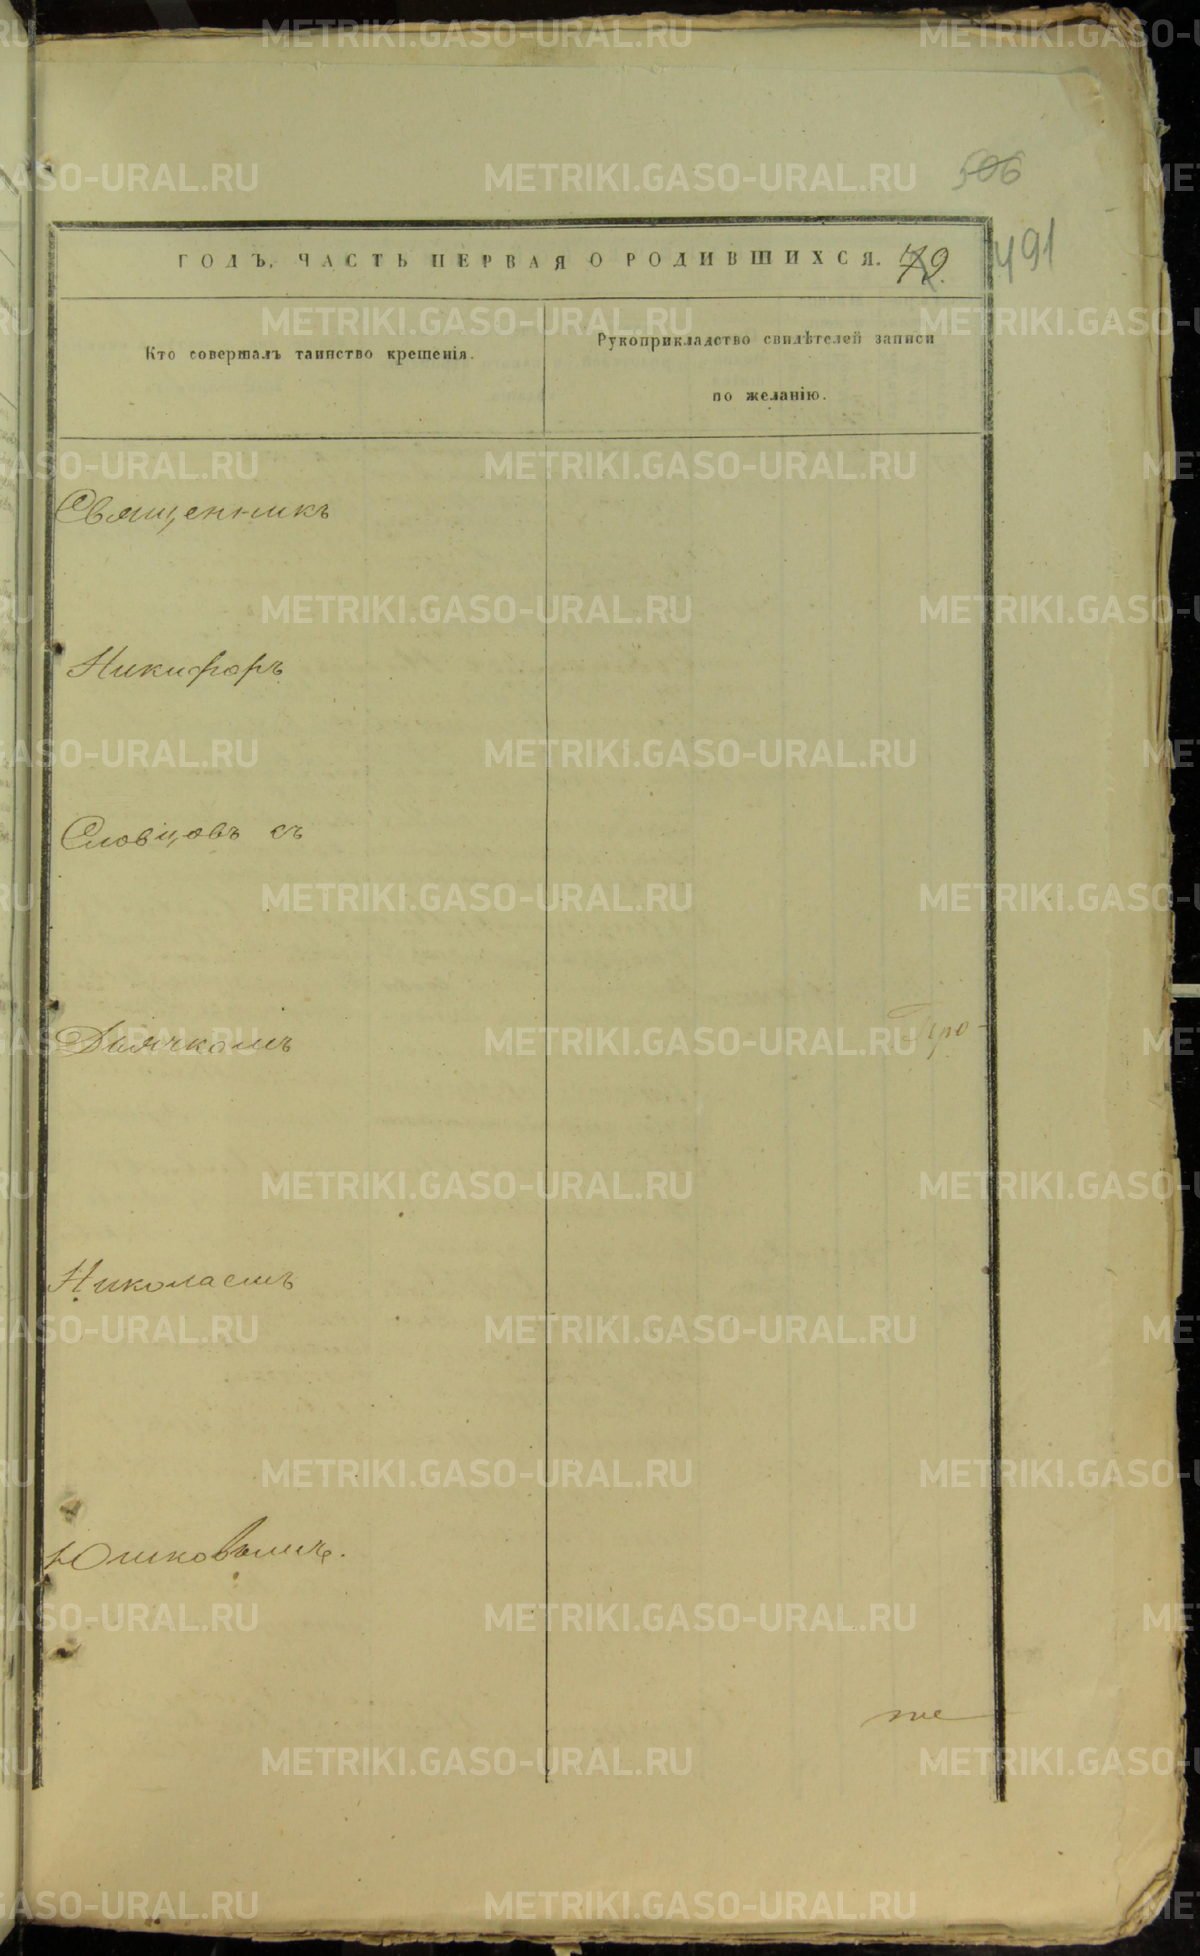 506
ГОДЪ. ЧАСТЬ ПЕРВАЯ О РОДИВШИХСЯ. 79.
491
Кто совершалъ таинство крещенія.
Рукоприкладство свидѣтелей записи
по желанію.
Священникъ
Никифоръ
Словцовъ съ
Дьячкомъ
Про-
Николаемъ
Юшковымъ.
те
METRIKI.GASO-URAL.RU